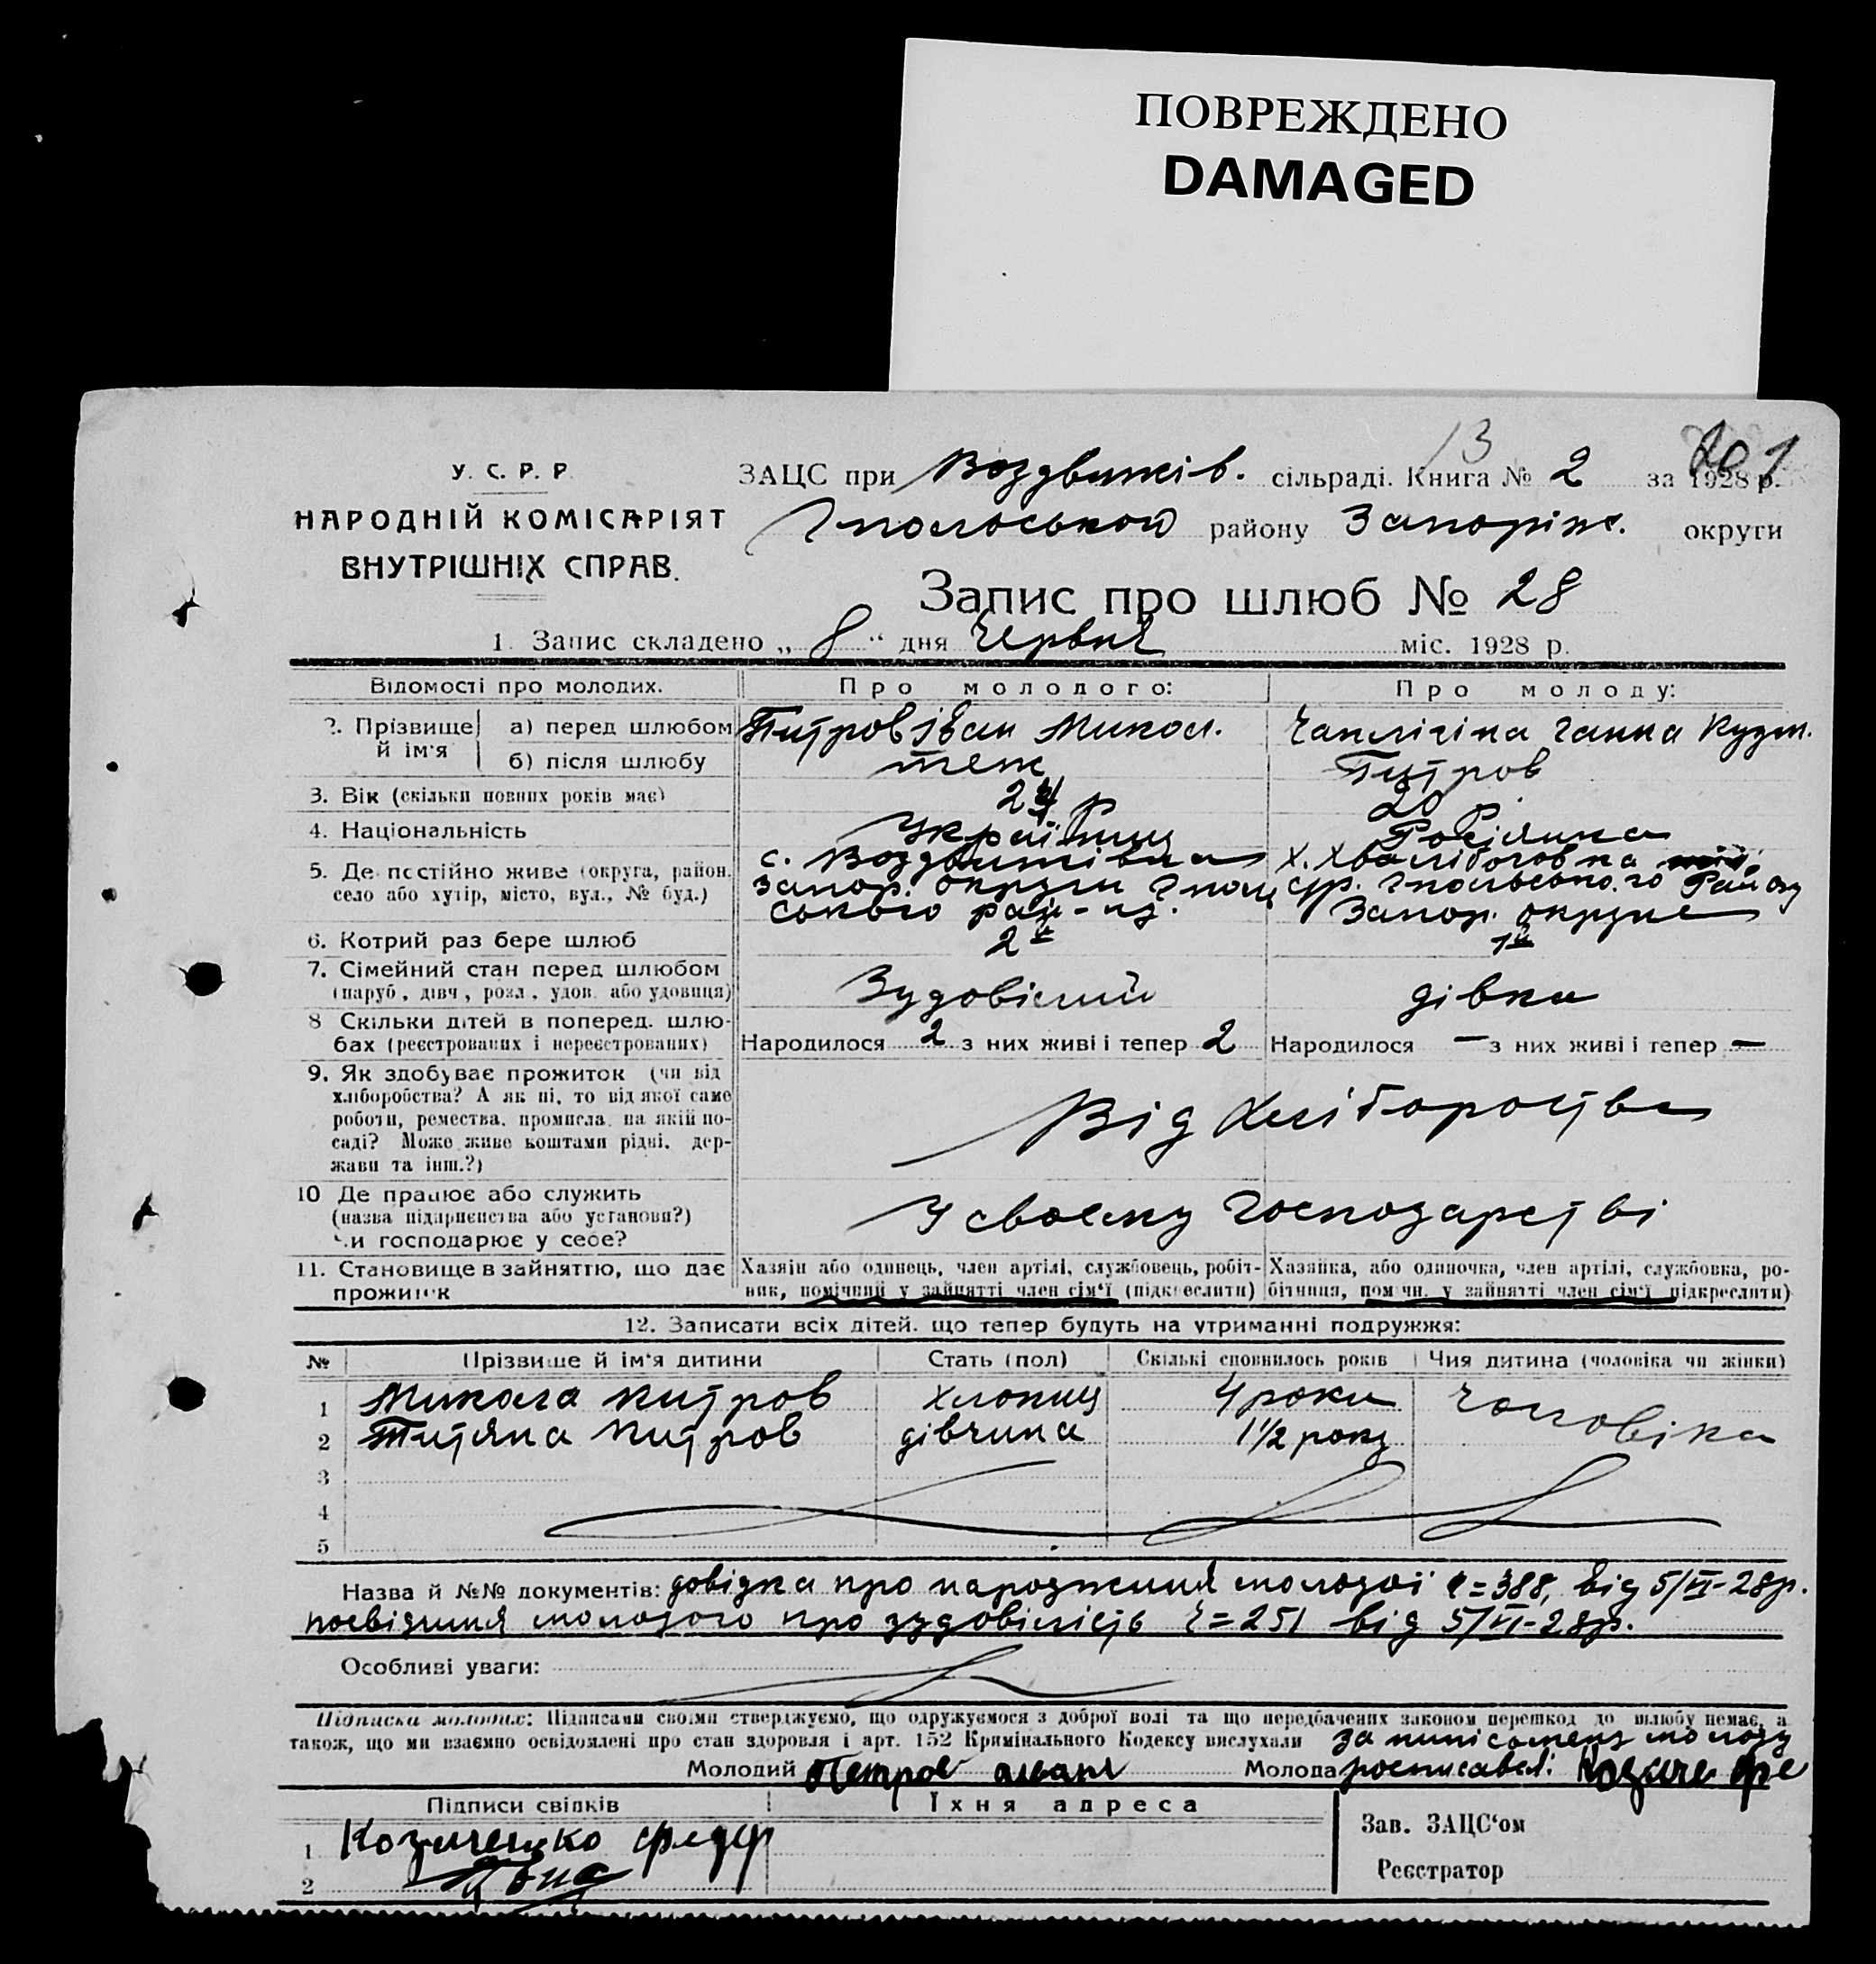 ПОВРЕЖДЕНО
DAMAGED
13
201
У. С. Р. Р.
НАРОДНІЙ КОМІСАРІЯТ
ВНУТРІШНІХ СПРАВ.
ЗАЦС при Воздвижів. сільраді. Книга № 2 за 1928 р.
району Запоріж. округи
Запис про шлюб № 28
1. Запис складено „ 8 “ дня Червня міс. 1928 р.
Відомості про молодих. Про молодого: Про молоду:
2. Прізвище й ім'я а) перед шлюбом Питров Іван Микол. Ганна Кузм.
б) після шлюбу теж Питров
3. Вік (скільки повних років має) 24 р 20 р.
4. Національність Українець Росіянка
5. Де постійно живе (округа, район, село або хутір, місто, вул., № буд.) с. Воздвижівка Запор. округи х. Запор. округи
6. Котрий раз бере шлюб 2й 1й
7. Сімейний стан перед шлюбом (паруб., дівч., розл., удов. або удовиця) Зудовілий дівка
8 Скільки дітей в поперед. шлюбах (реєстрованих і нереєстрованих) Народилося 2 з них живі і тепер 2 Народилося — з них живі і тепер —
9. Як здобуває прожиток (чи від хліборобства? А як ні, то від якої саме роботи, ремества, промисла, на якій посаді? Може живе коштами рідні, держави та інш.?) Від Хлібороства
10 Де працює або служить (назва підприємства або установи?) Чи господарює у себе? У своему господарстві
11. Становище в зайняттю, що дає прожиток Хазяїн або одинець, член артілі, службовець, робітник, помічний у зайнятті член сім'ї (підкреслити) Хазяйка, або одиночка, член артілі, службовка, робітниця, помічн. у зайнятті член сім'ї підкреслити)
12. Записати всіх дітей, що тепер будуть на утриманні подружжя:
№ Прізвише й ім'я дитини Стать (пол) Скількі сповнилось років Чия дитина (чоловіка чи жінки)
1 Микола Питров хлопиц 4 роки Чоловіка
2 Титяна Питров дівчина 1½ року
3
4
5
Назва й №№ документів: довідка про народження молодої ч=388, від 5/VI-28р.
посвідчиния молодого про зудовілість ч=251 від 5/VI-28р.
Особливі уваги:
Підписка молодих: Підписами своїми стверджуємо, що одружуємося з доброї волі та що передбачених законом перешкод до шлюбу немає, а
також, що ми взаємно освідомлені про стан здоровля і арт. 152 Кримінального Кодексу вислухали за молоду
Молодий Петров Молода росписавсь
Підписи свідків Їхня адреса Зав. ЗАЦС'ом
1 Федор
2 Реєстратор